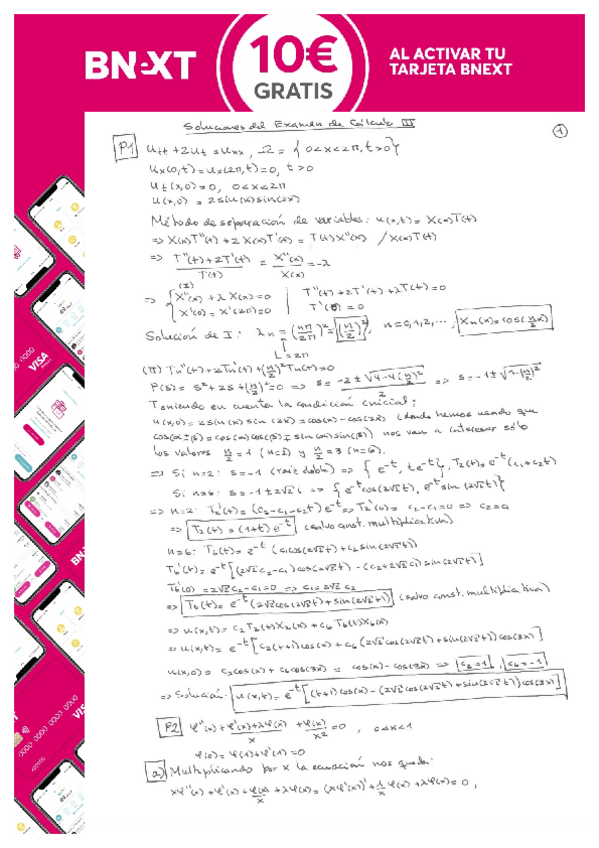 BNEXT
10€
GRATIS
AL ACTIVAR TU
TARJETA BNEXT
Soluciones del Examen de Cálculo III
1
P1 u_tt + 2u_t = u_xx, Ω = {0<x<2π, t>0}
u_x(0,t) = u_x(2π,t) = 0, t>0
u_t(x,0) = 0, 0<x<2π
u(x,0) = 2 sin(x) sin(2x)
Método de separación de variables: u(x,t) = X(x)T(t)
⇒ X(x)T''(t) + 2X(x)T'(t) = T(t)X''(x) /X(x)T(t)
⇒ (T''(t) + 2T'(t))/T(t) = X''(x)/X(x) = -λ
(I)
⇒ { X''(x) + λX(x) = 0 | T''(t) + 2T'(t) + λT(t) = 0
X'(0) = X'(2π) = 0 | T'(0) = 0
Solución de I: λn = (nπ/2π)² = (n/2)², n = 0,1,2,..., Xn(x) = cos(n/2 x)
L = 2π
(II) Tn''(t) + 2Tn'(t) + (n/2)²Tn(t) = 0
P(s) = s² + 2s + (n/2)² = 0 ⇒ s = (-2 ± √(4-4(n/2)²))/2 ⇒ s = -1 ± √(1-(n/2)²)
Teniendo en cuenta la condición inicial:
u(x,0) = 2 sin(x) sin(2x) = cos(x) - cos(3x) (donde hemos usado que
cos(α±β) = cos(α)cos(β) ∓ sin(α)sin(β)) nos van a interesar sólo
los valores n/2 = 1 (n=2) y n/2 = 3 (n=6).
⇒ Si n=2: s = -1 (raíz doble) ⇒ {e^-t, te^-t}, T2(t) = e^-t(c1+c2t)
Si n=6: s = -1 ± 2√2 i ⇒ {e^-t cos(2√2t), e^-t sin(2√2t)}
⇒ n=2: T2'(t) = (c2-c1-c2t)e^-t ⇒ T2'(0) = c2-c1 = 0 ⇒ c2 = c1
⇒ T2(t) = (1+t)e^-t (salvo const. multiplicativa)
n=6: T6(t) = e^-t (c1cos(2√2t) + c2 sin(2√2t))
T6'(t) = e^-t [(2√2c2-c1)cos(2√2t) - (c2+2√2c1) sin(2√2t)]
T6'(0) = 2√2c2-c1 = 0 ⇒ c1 = 2√2 c2
⇒ T6(t) = e^-t (2√2cos(2√2t) + sin(2√2t)) (salvo const. multiplicativa)
⇒ u(x,t) = c2T2(t)X2(x) + c6T6(t)X6(x)
⇒ u(x,t) = e^-t [c2(t+1)cos(x) + c6 (2√2cos(2√2t) + sin(2√2t))cos(3x)]
u(x,0) = c2cos(x) + c6cos(3x) = cos(x) - cos(3x) ⇒ c2 = 1, c6 = -1
⇒ Solución: u(x,t) = e^-t [(t+1)cos(x) - (2√2cos(2√2t) + sin(2√2t))cos(3x)]
P2 φ''(x) + (φ'(x)+λφ(x))/x + φ(x)/x² = 0, 0<x<1
φ(0) = φ(1)+φ'(1) = 0
a) Multiplicando por x la ecuación nos queda:
xφ''(x) + φ'(x) + φ(x)/x + λφ(x) = (xφ'(x))' + 1/x φ(x) + λφ(x) = 0,
VISA
BNEXT
VISA